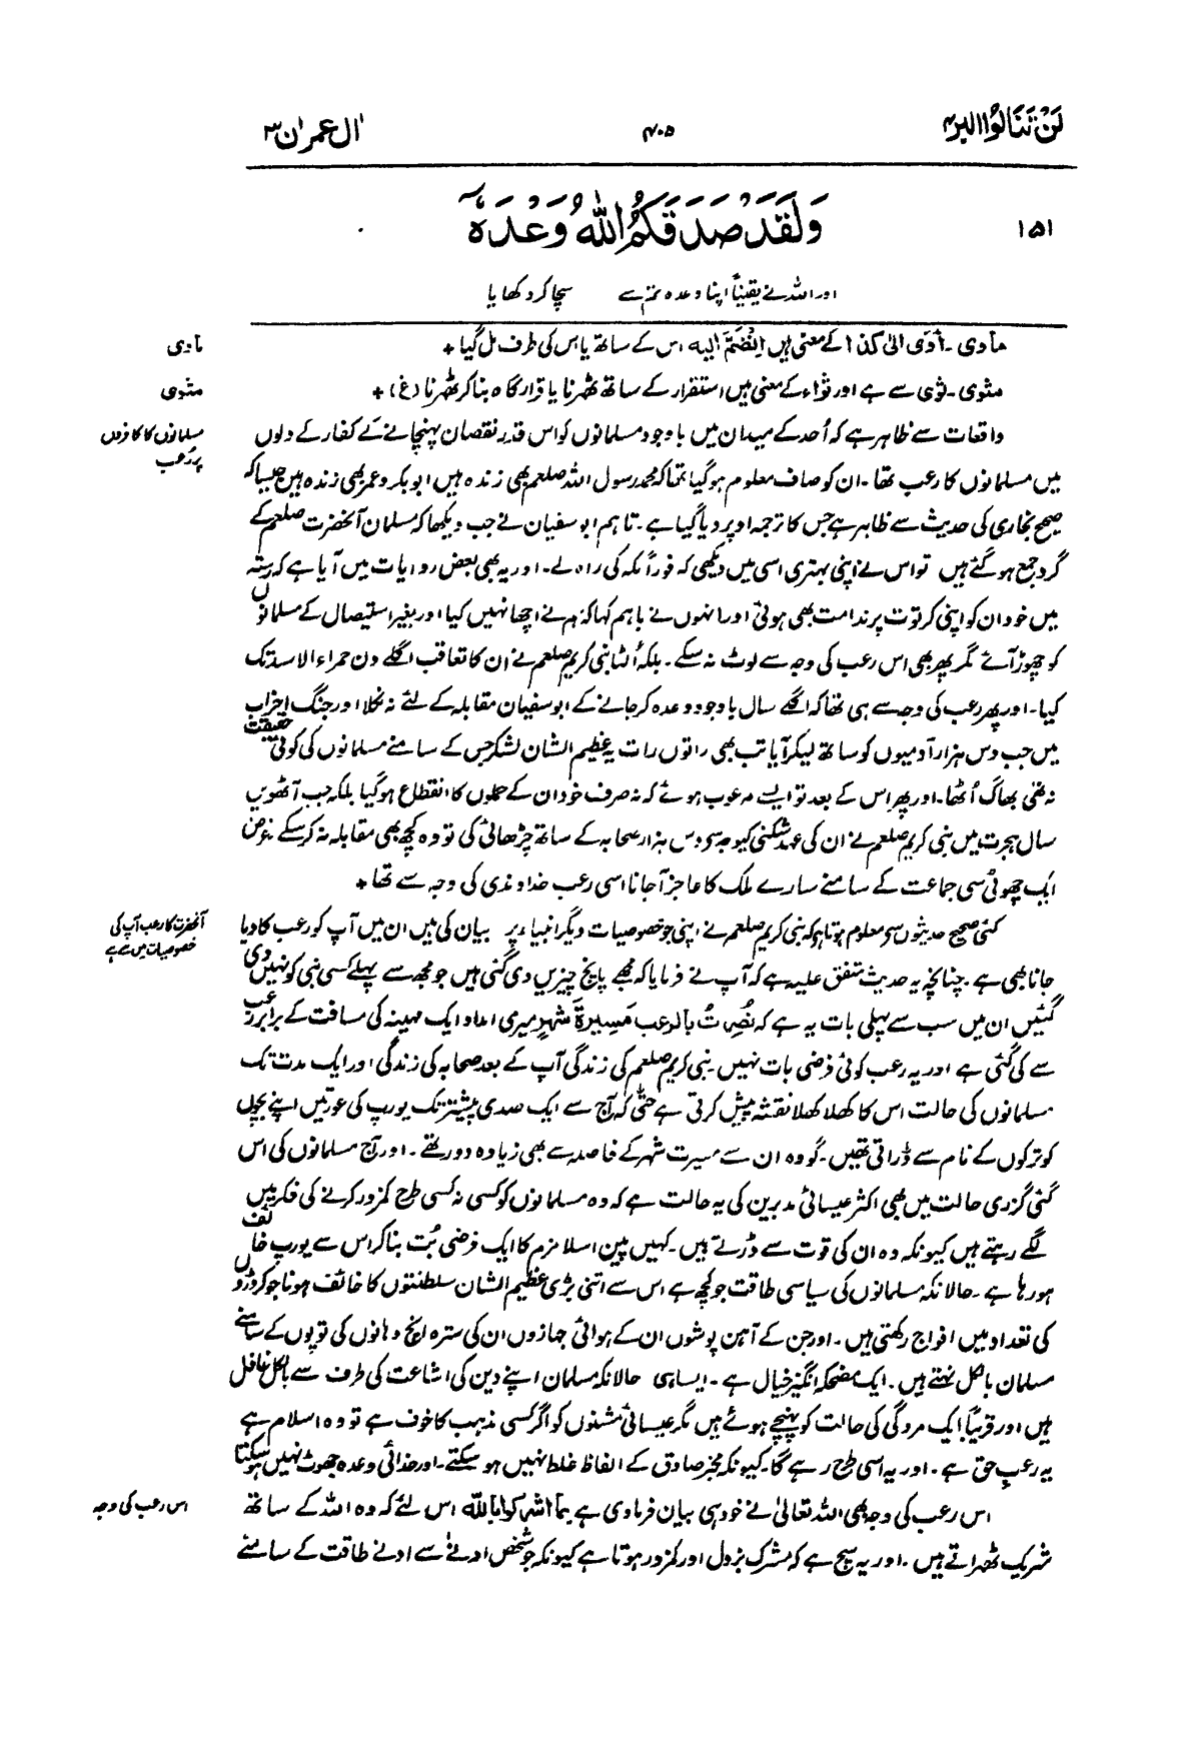 لَنْ تَنَالُوا البر ۴
۴۰۵
اٰل عمرٰن ۳
۱۵۱
وَلَقَدْ صَدَقَكُمُ اللّٰهُ وَعْدَهٗٓ
اور اللہ نے یقیناً اپنا وعدہ تم سے سچا کر دکھایا
ماوی
ماٰوی۔ اَوٰی الیٰ کذا کے معنی ہیں اِنْضَمَّ الیہ اس کے ساتھ یا اس کی طرف مل گیا +
مثویٰ
مثویٰ۔ ثویٰ سے ہے اور ثَوَاء کے معنی ہیں استقرار کے ساتھ ٹھہرنا یا قرار گاہ بنا کر ٹھہرنا (غ) +
مسلمانوں کا کافروں
پر رعب
واقعات سے ظاہر ہے کہ اُحد کے میدان میں باوجود مسلمانوں کو اس قدر نقصان پہنچانے کے کفار کے دلوں
میں مسلمانوں کا رعب تھا۔ ان کو صاف معلوم ہو گیا تھا کہ محمد رسول اللہ صلعم بھی زندہ ہیں ابوبکر و عمر بھی زندہ ہیں جیسا کہ
صحیح بخاری کی حدیث سے ظاہر ہے جس کا ترجمہ اوپر دیا گیا ہے۔ تاہم ابو سفیان نے جب دیکھا کہ مسلمان آنحضرت صلعم کے
گرد جمع ہو گئے ہیں تو اس نے اپنی بہتری اسی میں دیکھی کہ فوراً مکہ کی راہ لے۔ اور یہ بھی بعض روایات میں آیا ہے کہ رستہ
میں خود ان کو اپنی کرتوت پر ندامت بھی ہوئی اور انہوں نے باہم کہا کہ ہم نے اچھا نہیں کیا اور بغیر استیصال کے مسلمانوں
کو چھوڑ آئے مگر پھر بھی اس رعب کی وجہ سے لوٹ نہ سکے۔ بلکہ اُلٹا نبی کریم صلعم نے ان کا تعاقب اگلے دن حمراء الاسد تک
کیا۔ اور پھر رعب کی وجہ سے ہی تھا کہ اگلے سال باوجود وعدہ کر جانے کے ابو سفیان مقابلہ کے لئے نہ نکلا اور جنگ احزاب
میں جب دس ہزار آدمیوں کو ساتھ لیکر آیا تب بھی راتوں رات یہ عظیم الشان لشکر جس کے سامنے مسلمانوں کی کوئی حقیقت
نہ تھی بھاگ اُٹھا۔ اور پھر اس کے بعد تو ایسے مرعوب ہوئے کہ نہ صرف خود ان کے حملوں کا انقطاع ہو گیا بلکہ جب آٹھویں
سال ہجرت میں نبی کریم صلعم نے ان کی عہد شکنی کیوجہ سے دس ہزار صحابہ کے ساتھ چڑھائی کی تو وہ کچھ بھی مقابلہ نہ کر سکے غرض
ایک چھوٹی سی جماعت کے سامنے سارے ملک کا عاجز آ جانا اسی رعب خداوندی کی وجہ سے تھا +
آنحضرت کا رعب آپ کی
خصوصیات میں سے ہے
کئی صحیح حدیثوں سے معلوم ہوتا ہے کہ نبی کریم صلعم نے اپنی جو خصوصیات دیگر انبیاء پر بیان کی ہیں ان میں آپ کو رعب کا دیا
جانا بھی ہے۔ چنانچہ یہ حدیث متفق علیہ ہے کہ آپ نے فرمایا کہ مجھے پانچ چیزیں دی گئی ہیں جو مجھ سے پہلے کسی نبی کو نہیں دی
گئیں ان میں سب سے پہلی بات یہ ہے کہ نُصِرْتُ بالرعب مَسِیرۃَ شَہرٍ میری امداد ایک مہینہ کی مسافت کے برابر رعب
سے کی گئی ہے اور یہ رعب کوئی فرضی بات نہیں نبی کریم صلعم کی زندگی آپ کے بعد صحابہ کی زندگی اور ایک مدت تک
مسلمانوں کی حالت اس کا کھلا کھلا نقشہ پیش کرتی ہے حتّٰی کہ آج سے ایک صدی پیشتر تک یورپ کی عورتیں اپنے بچوں
کو ترکوں کے نام سے ڈراتی تھیں۔ گو وہ ان سے مسیرت شہر کے فاصلہ سے بھی زیادہ دور تھے۔ اور آج مسلمانوں کی اس
گئی گزری حالت میں بھی اکثر عیسائی مدبرین کی یہ حالت ہے کہ وہ مسلمانوں کو کسی نہ کسی طرح کمزور کرنے کی فکر میں
لگے رہتے ہیں کیونکہ وہ ان کی قوت سے ڈرتے ہیں۔ کہیں پین اسلامزم کا ایک فرضی بُت بنا کر اس سے یورپ خائف
ہو رہا ہے۔ حالانکہ مسلمانوں کی سیاسی طاقت جو کچھ ہے اس سے اتنی بڑی عظیم الشان سلطنتوں کا خائف ہونا جو کروڑوں
کی تعداد میں افواج رکھتی ہیں۔ اور جن کے آہن پوشوں ان کے ہوائی جہازوں ان کی سترہ انچ دہانوں کی توپوں کے سامنے
مسلمان بالکل نہتے ہیں۔ ایک مضحکہ انگیز خیال ہے۔ ایسا ہی حالانکہ مسلمان اپنے دین کی اشاعت کی طرف سے بالکل غافل
ہیں اور قریباً ایک مردگی کی حالت کو پہنچے ہوئے ہیں مگر عیسائی مشنوں کو اگر کسی مذہب کا خوف ہے تو وہ اسلام ہے
یہ رعب حق ہے۔ اور یہ اسی طرح رہے گا۔ کیونکہ مخبر صادق کے الفاظ غلط نہیں ہو سکتے۔ اور خدائی وعدہ جھوٹ نہیں ہو سکتا
اس رعب کی وجہ
اس رعب کی وجہ بھی اللہ تعالیٰ نے خود ہی بیان فرما دی ہے بمآ اشرکوا باللّٰہ اس لئے کہ وہ اللہ کے ساتھ
شریک ٹھہراتے ہیں۔ اور یہ سچ ہے کہ مشرک بزدل اور کمزور ہوتا ہے کیونکہ جو شخص ادنےٰ سے ادنے طاقت کے سامنے